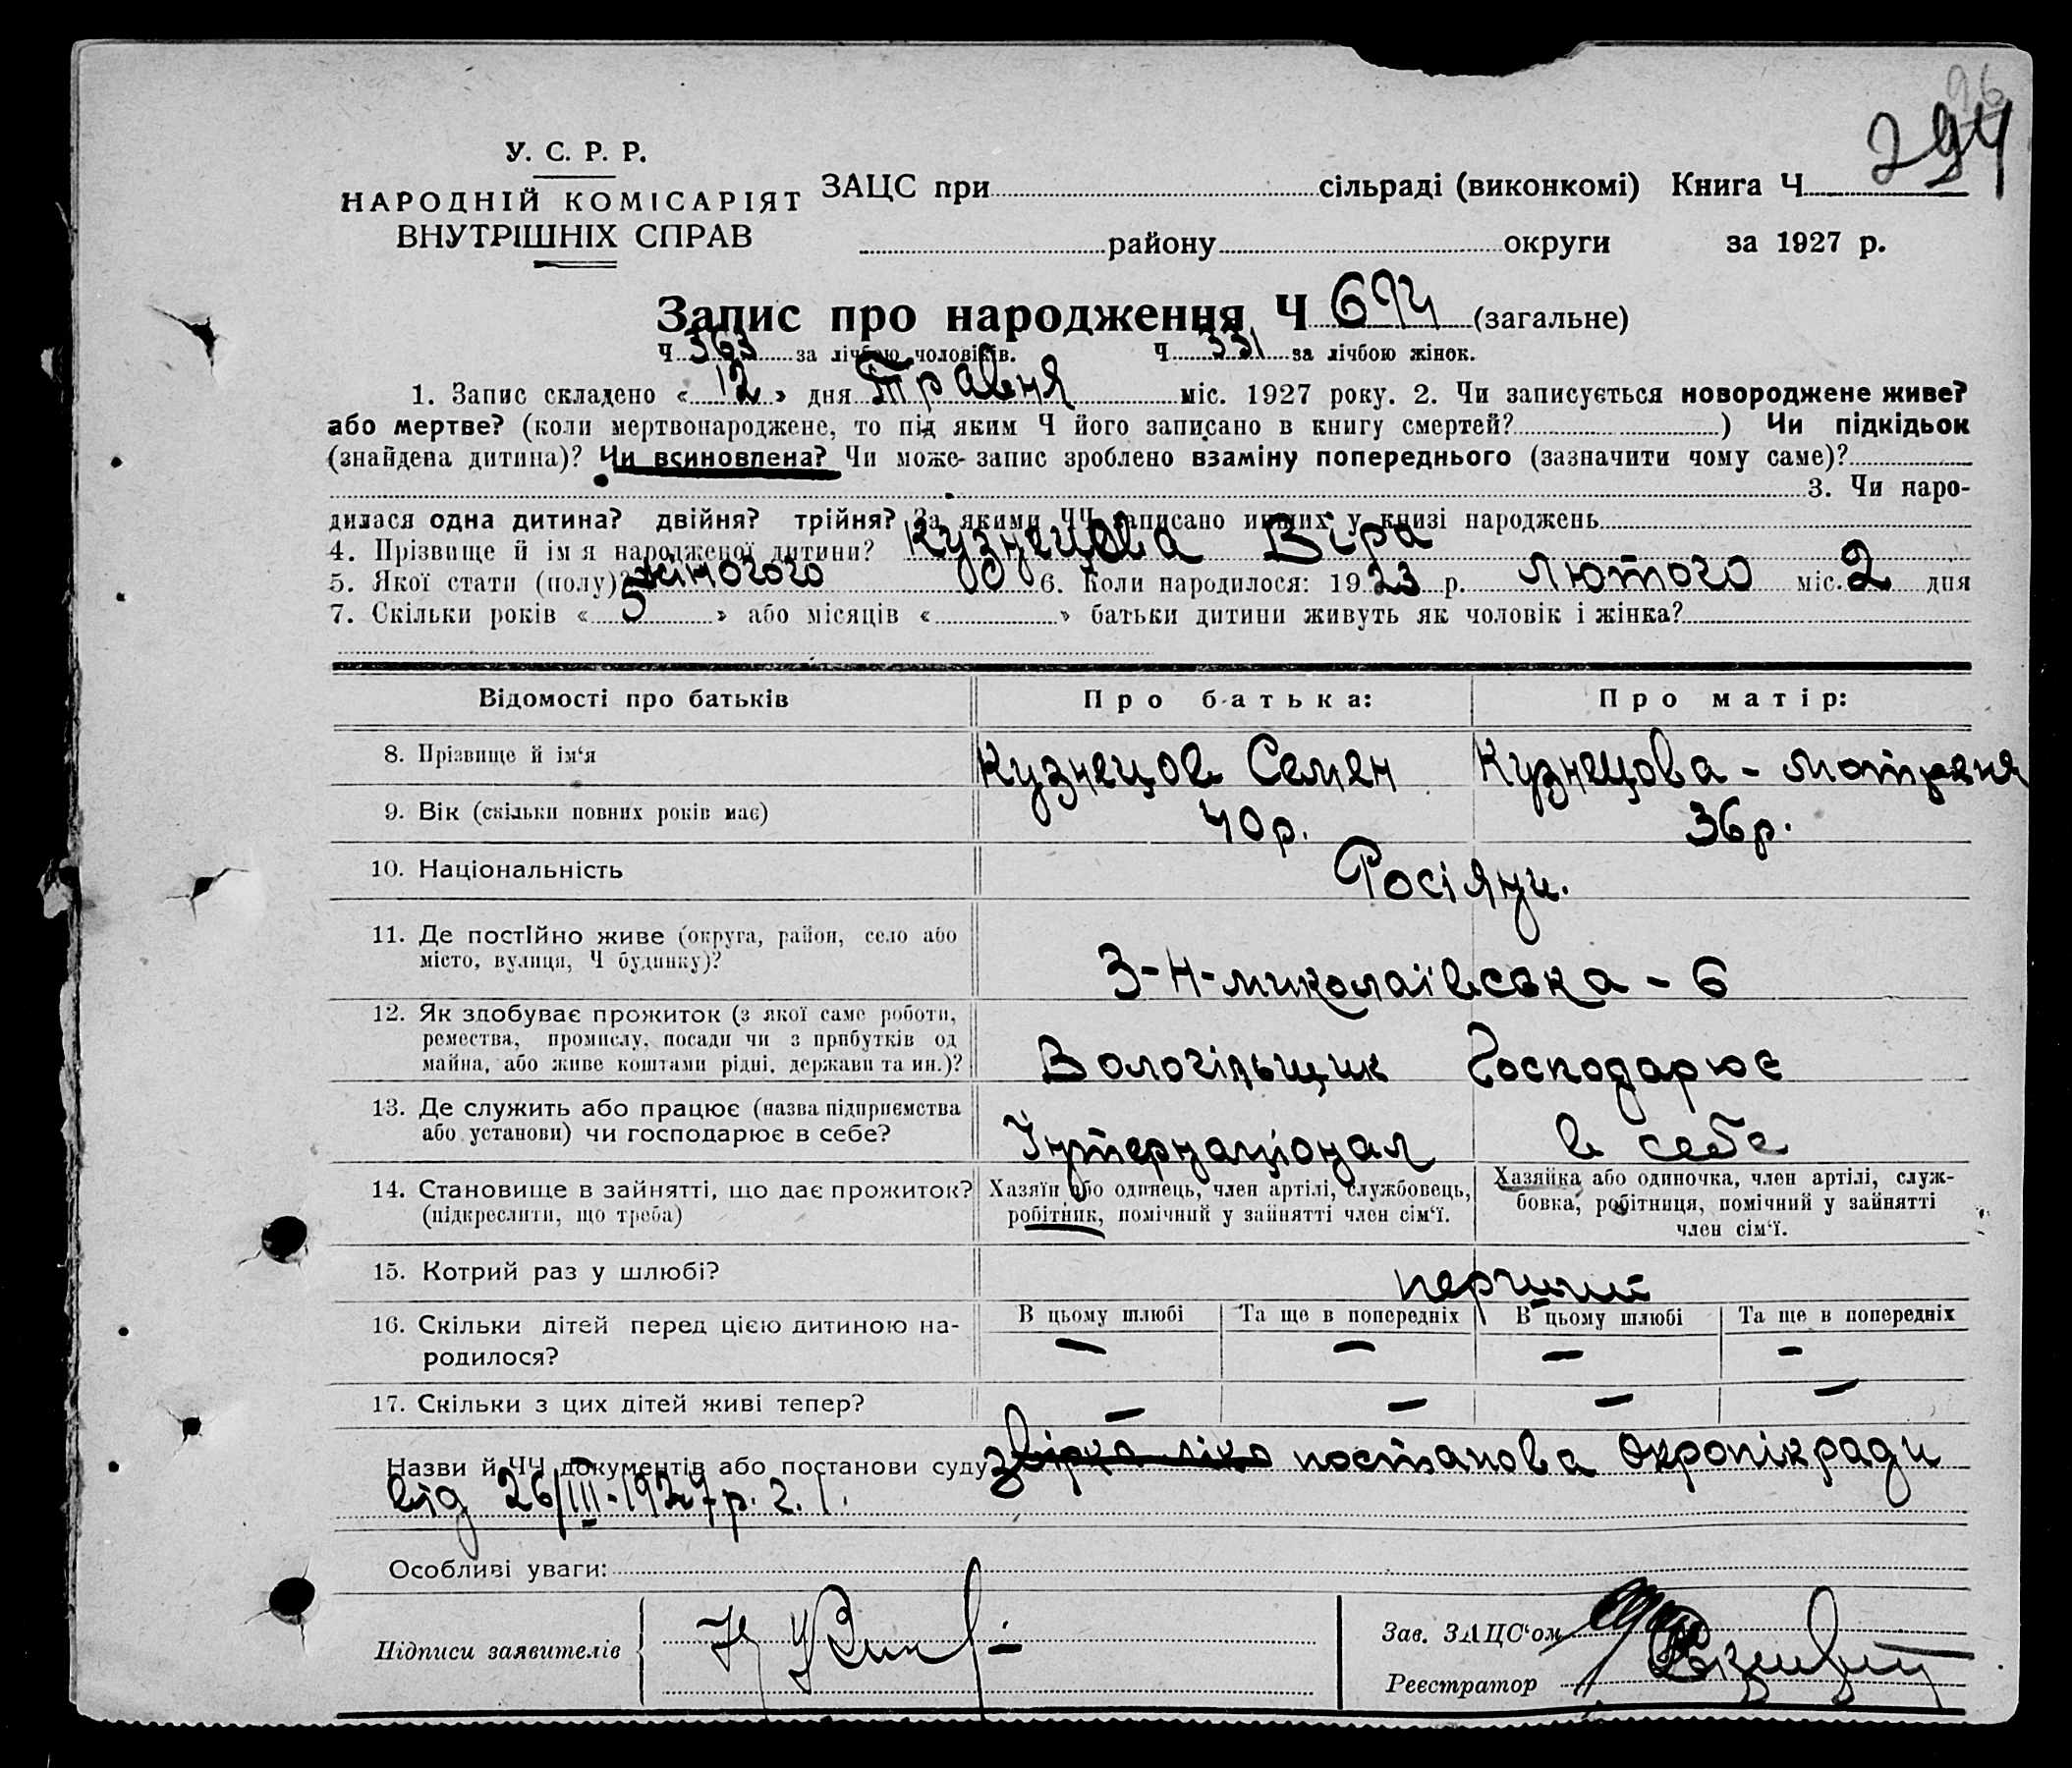 294
У. С. Р. Р.
НАРОДНІЙ КОМІСАРІЯТ
ВНУТРІШНІХ СПРАВ
ЗАЦС при сільраді (виконкомі) Книга Ч
району округи за 1927 р.
Запис про народження Ч 694 (загальне)
Ч 363 за лічбою чоловіків. Ч 331 за лічбою жінок.
1. Запис складено « 12 » дня Травня міс. 1927 року. 2. Чи записується новороджене живе?
або мертве? (коли мертвонароджене, то під яким Ч його записано в книгу смертей? ) Чи підкідьок
(знайдена дитина)? Чи всиновлена? Чи може- запис зроблено взаміну попереднього (зазначити чому саме)?
3. Чи наро-
дилася одна дитина? двійня? трійня? За якими ЧЧ записано инших у книзі народжень
4. Прізвище й ім я народженої дитини? Кузнецова Віра
5. Якої статі (полу)? жіночого 6. Коли народилося: 1923 р. лютого міс. 2 дня
7. Скільки років « 5 » або місяців « » батьки дитини живуть як чоловік і жінка?
Відомості про батьків Про батька: Про матір:
8. Прізвище й ім‘я Кузнецов Семен Кузнецова - Мотреня
9. Вік (скільки повних років має) 40 р. 36 р.
10. Національність Росіяни.
11. Де постійно живе (округа, район, село або
місто, вулиця, Ч будинку)? 3-Н-миколаївська - 6
12. Як здобуває прожиток (з якої саме роботи,
ремества, промислу, посади чи з прибутків од
майна, або живе коштами рідні, держави та ин.)? Господарює
13. Де служить або працює (назва підприємства
або установи) чи господарює в себе? Інтернаціонал в себе
14. Становище в зайнятті, що дає прожиток?
(підкреслити, що треба)
Хазяїн або одинець, член артілі, службовець,
робітник, помічний у зайнятті член сім‘ї.
Хазяйка або одиночка, член артілі, служ-
бовка, робітниця, помічний у зайнятті
член сім‘ї.
15. Котрий раз у шлюбі? перший
16. Скільки дітей перед цією дитиною на-
родилося?
В цьому шлюбі Та ще в попередніх В цьому шлюбі Та ще в попередніх
— — — —
17. Скільки з цих дітей живі тепер? — — — —
Назви й ЧЧ документів або постанови суду постанова Окропікради
від 26/III-1927 р.
Особливі уваги:
Підписи заявителів
Зав. ЗАЦС‘ом
Реєстратор